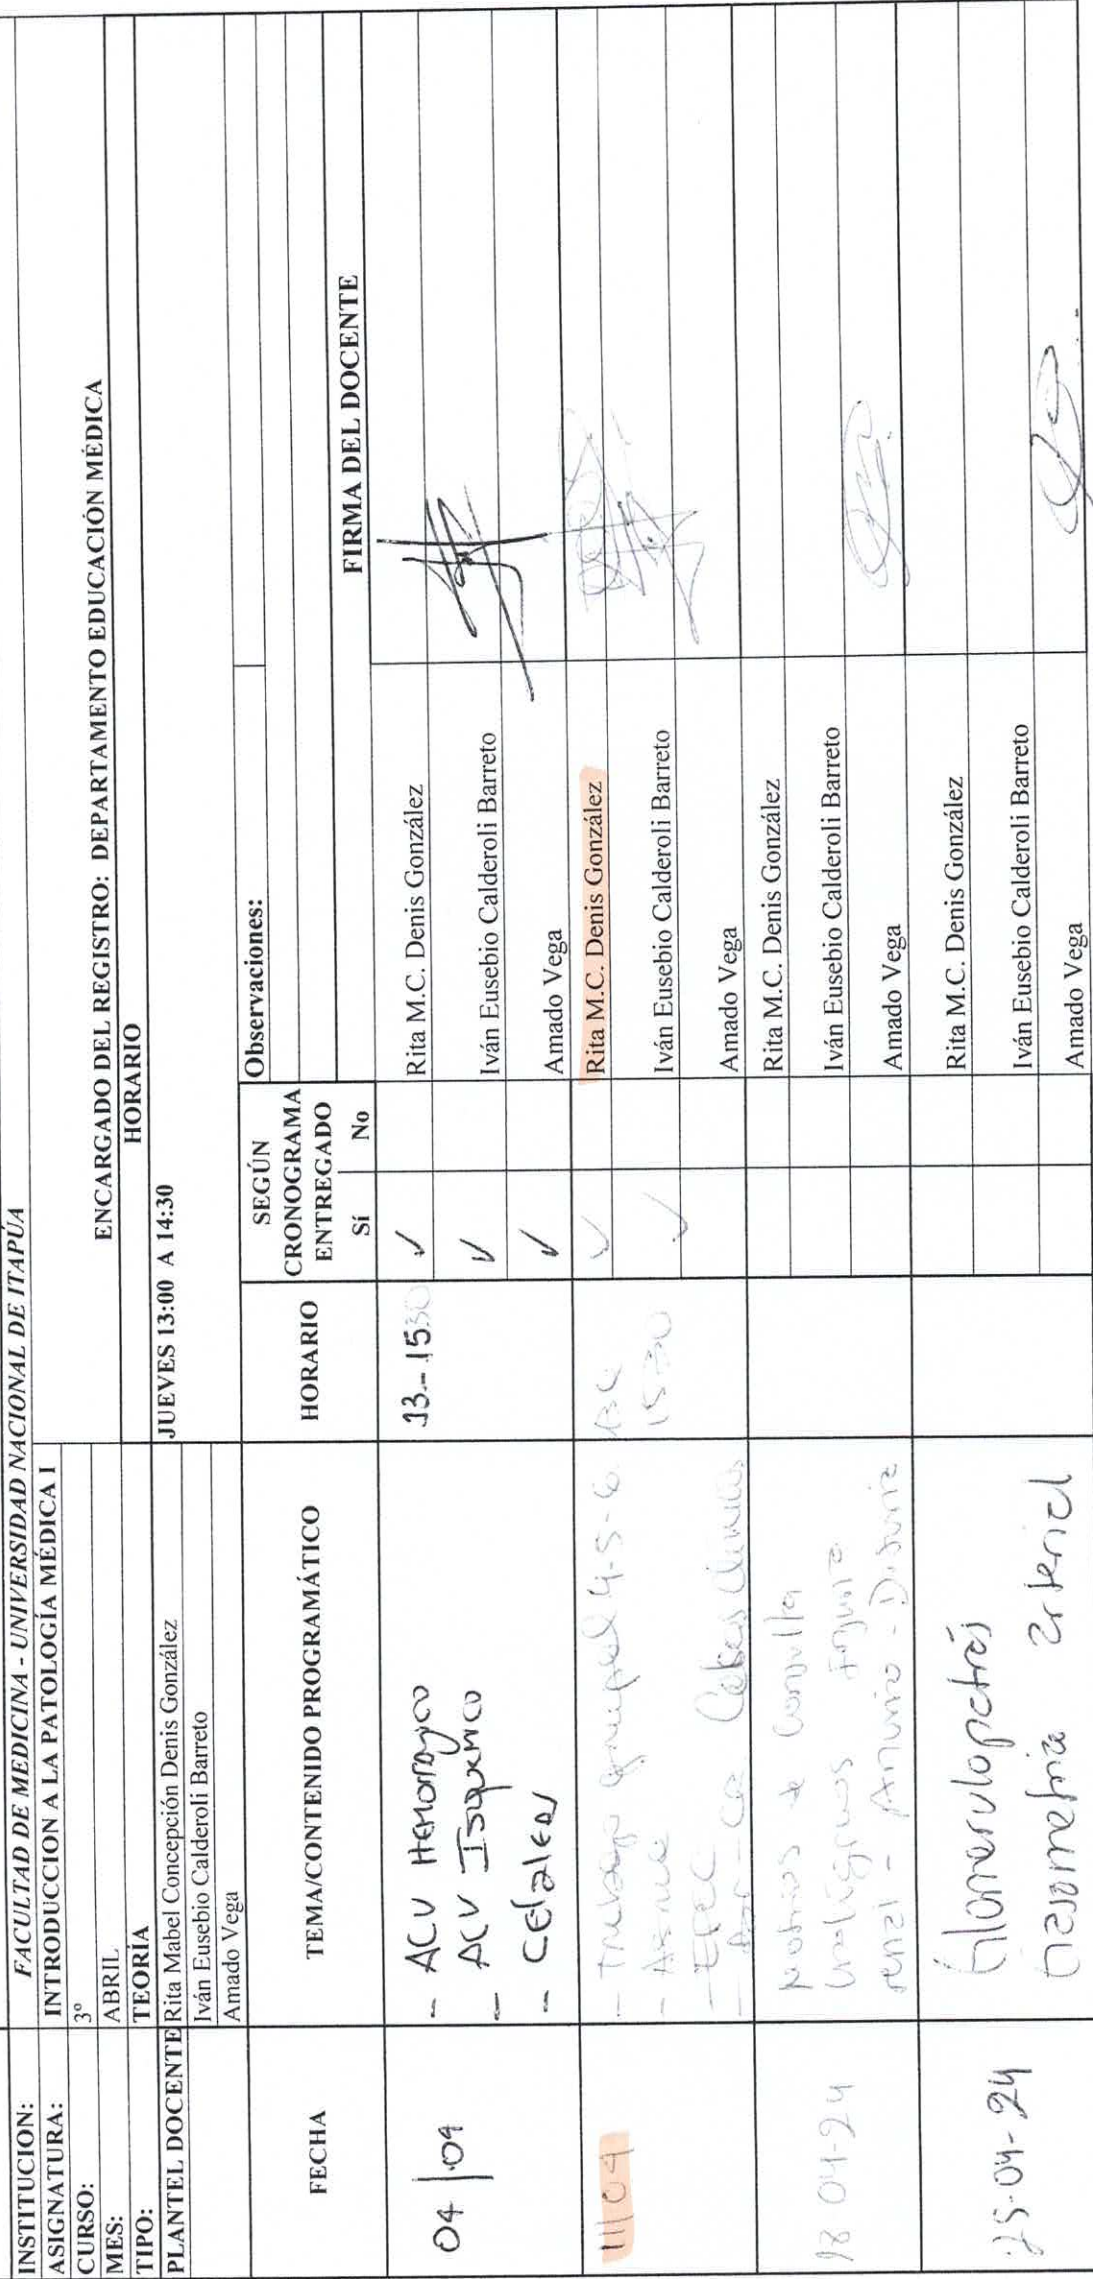 INSTITUCION: FACULTAD DE MEDICINA - UNIVERSIDAD NACIONAL DE ITAPÚA
ASIGNATURA: INTRODUCCION A LA PATOLOGÍA MÉDICA I
ENCARGADO DEL REGISTRO: DEPARTAMENTO EDUCACIÓN MÉDICA
CURSO: 3º
MES: ABRIL
HORARIO
TIPO: TEORÍA
PLANTEL DOCENTE Rita Mabel Concepción Denis González JUEVES 13:00 A 14:30
Iván Eusebio Calderoli Barreto
Amado Vega
Observaciones:
FECHA TEMA/CONTENIDO PROGRAMÁTICO HORARIO SEGÚN CRONOGRAMA ENTREGADO Sí No FIRMA DEL DOCENTE
04/04
- ACV Hemoragico
- ACV Isquemico
- Cefaleas
13 - 15:30
✓
✓
✓
Rita M.C. Denis González
Iván Eusebio Calderoli Barreto
Amado Vega
11/04
- Trabajo grupal 4-5-6
- Asma
- EPOC
Casos clinicos
15:30
✓
✓
Rita M.C. Denis González
Iván Eusebio Calderoli Barreto
Amado Vega
18-04-24
Motivos de Consulta
urologicos Injuria
renal - Anuria - Disuria
Rita M.C. Denis González
Iván Eusebio Calderoli Barreto
Amado Vega
25-04-24
Glomerulopatías
Gasometria arterial
Rita M.C. Denis González
Iván Eusebio Calderoli Barreto
Amado Vega